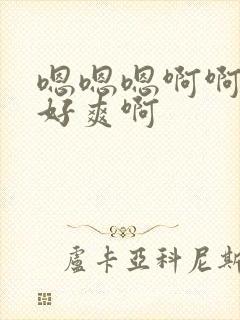 嗯嗯嗯啊啊
好爽啊
盧卡亞科尼斯